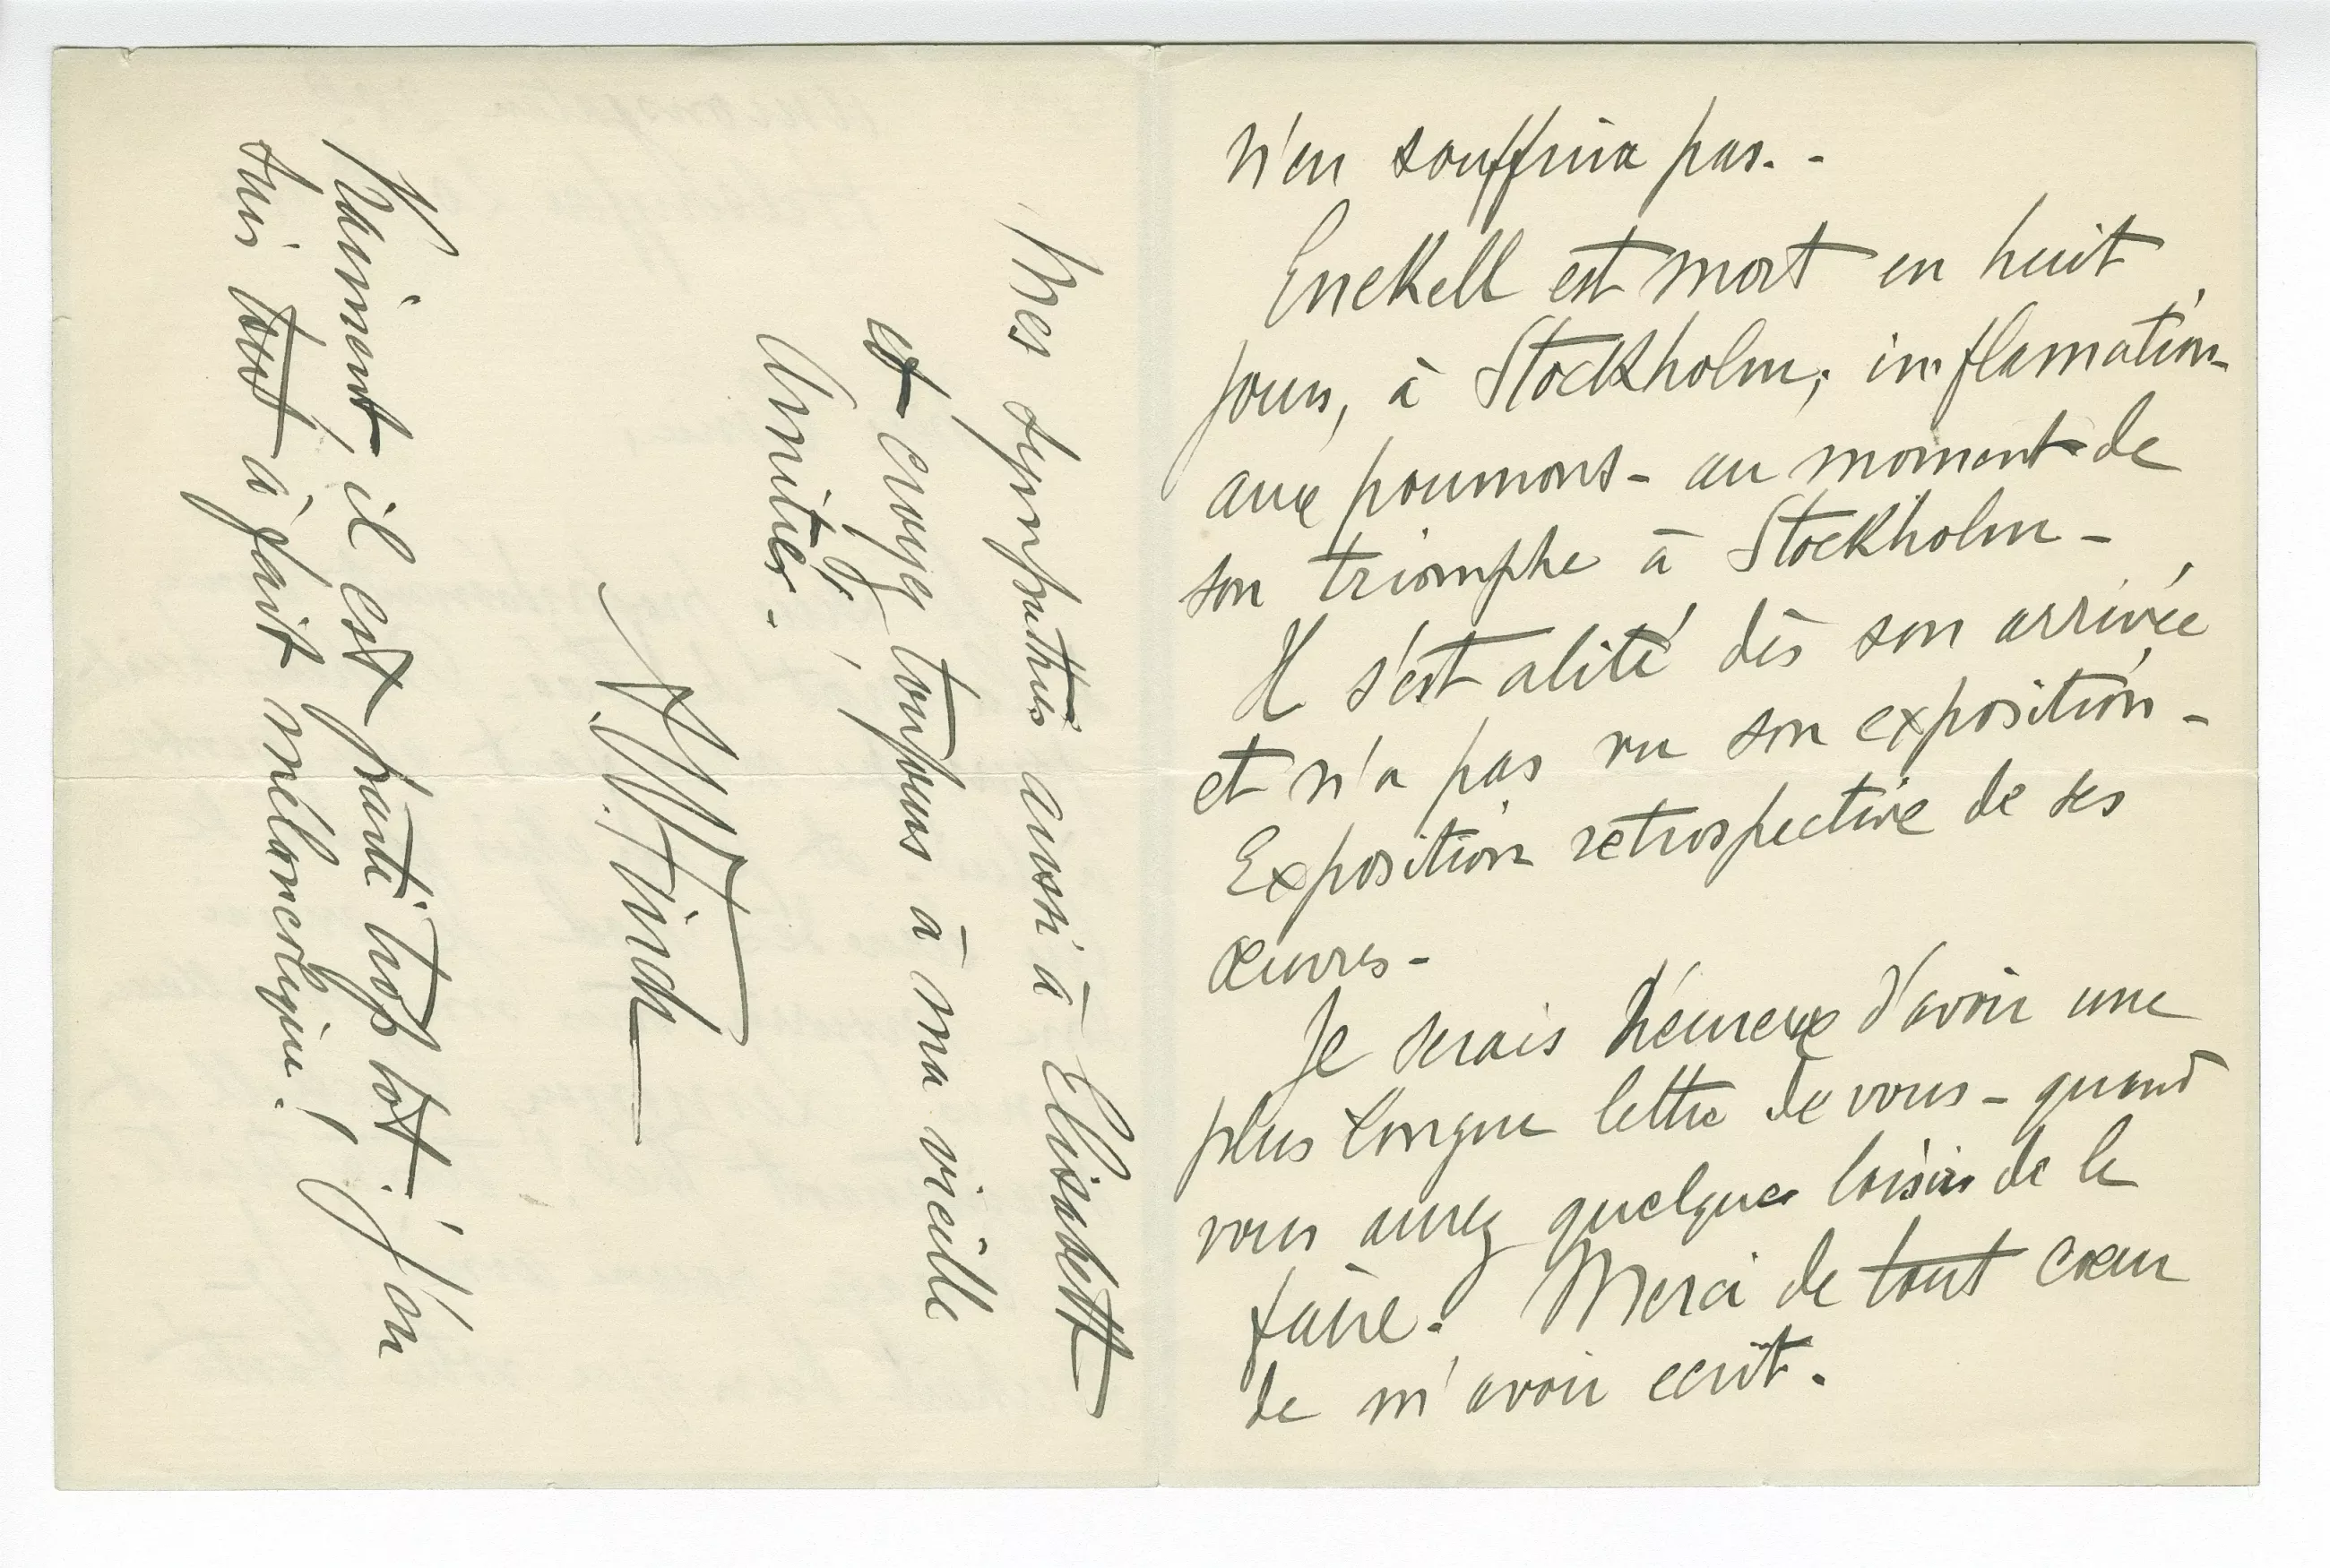 n'en souffrira pas. -
Enckell est mort en huit
jours, à Stockholm; inflamation
aux poumons - au moment de
son triomphe à Stockholm -
Il s'est alité dès son arrivée
et n'a pas vu son exposition -
Exposition retrospective de ses
œuvres -
Je serais heureux d'avoir une
plus longue lettre de vous - quand
vous aurez quelques loisirs de le
faire. Merci de tout cœur
de m'avoir ecrit.
Mes sympathies aussi à Elisabeth
et croyez toujours à ma vieille
Amitié. -
A.W. Finch
Vraiment, il est parti trop tôt. J'en
suis tout à fait mélancolique!